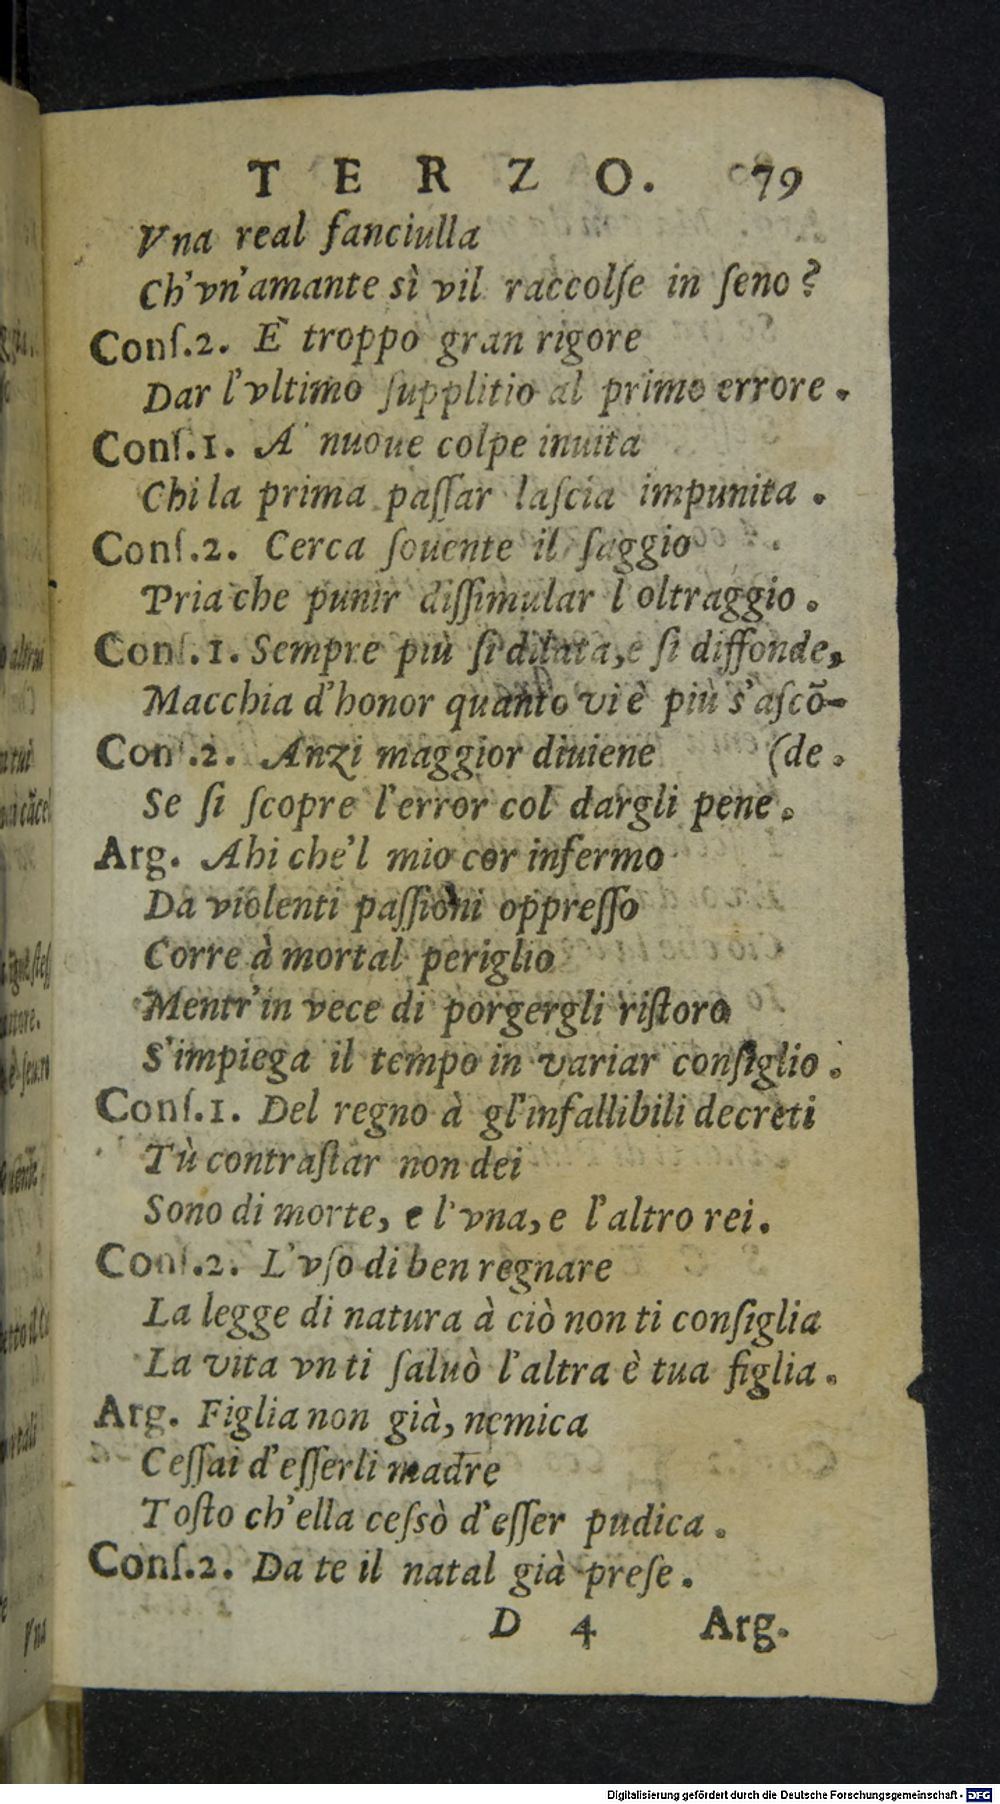 TERZO. 79
Vna real fanciulla
Ch'vn'amante sì vil raccolſe in ſeno?
Conſ.2. È troppo gran rigore
Dar l'vltimo ſupplitio al primo errore.
Conſ.1. A nuoue colpe inuita
Chi la prima paſſar laſcia impunita.
Conſ.2. Cerca ſouente il ſaggio
Pria che punir diſſimular l'oltraggio.
Conſ.1. Sempre più ſi dilata, e ſi diffonde,
Macchia d'honor quanto vi è più s'aſcõ-
Conſ.2. Anzi maggior diuiene (de.
Se ſi ſcopre l'error col dargli pene.
Arg. Ahi che'l mio cor infermo
Da violenti paſſioni oppreſſo
Corre à mortal periglio
Mentr'in vece di porgergli riſtoro
S'impiega il tempo in variar conſiglio.
Conſ.1. Del regno à gl'infallibili decreti
Tù contraſtar non dei
Sono di morte, e l'vna, e l'altro rei.
Conſ.2. L'vſo di ben regnare
La legge di natura à ciò non ti conſiglia
La vita vn ti ſaluò l'altra è tua figlia.
Arg. Figlia non già, nemica
Ceſſai d'eſſerli madre
Toſto ch'ella ceſsò d'eſſer pudica.
Conſ.2. Da te il natal già preſe.
D 4 Arg.
Digitalisierung gefördert durch die Deutsche Forschungsgemeinschaft - DFG